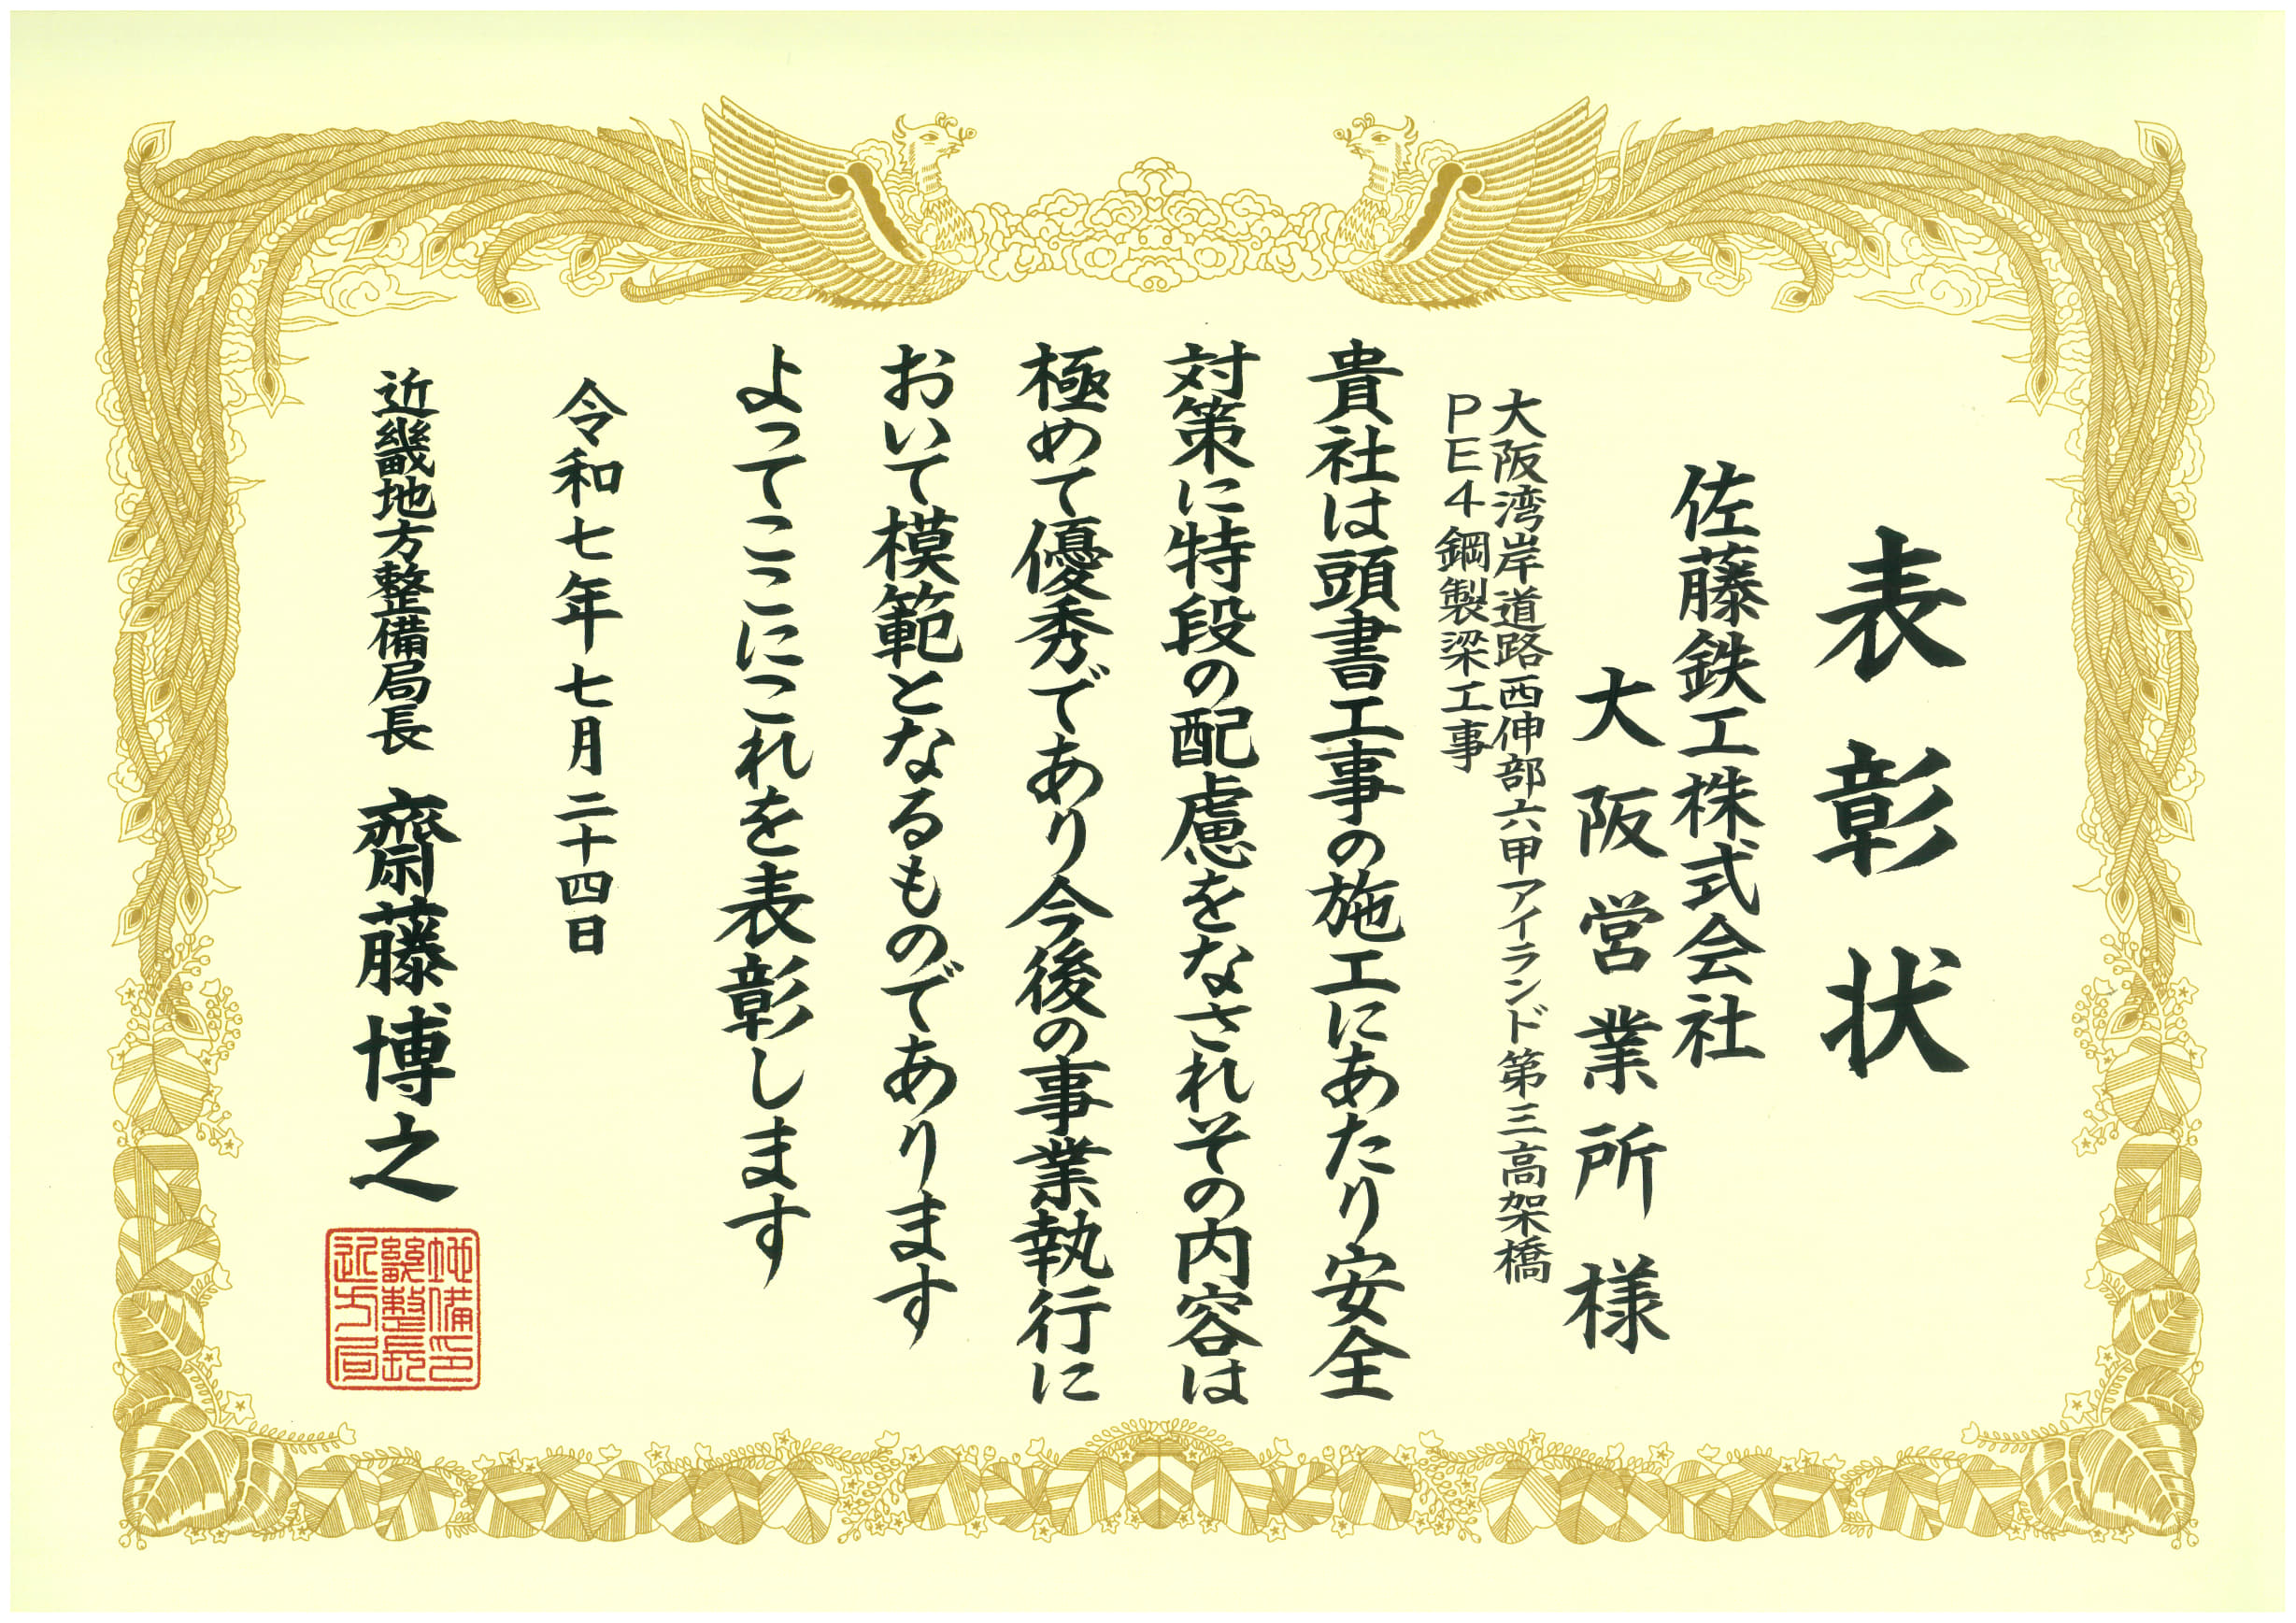 表彰状
佐藤鉄工株式会社
大阪営業所様
大阪湾岸道路西伸部六甲アイランド第三高架橋
PE4鋼製梁工事
貴社は頭書工事の施工にあたり安全
対策に特段の配慮をなされその内容は
極めて優秀であり今後の事業執行に
おいて模範となるものであります
よってここにこれを表彰します
令和七年七月二十四日
近畿地方整備局長 齋藤博之
近畿地方整備局長印